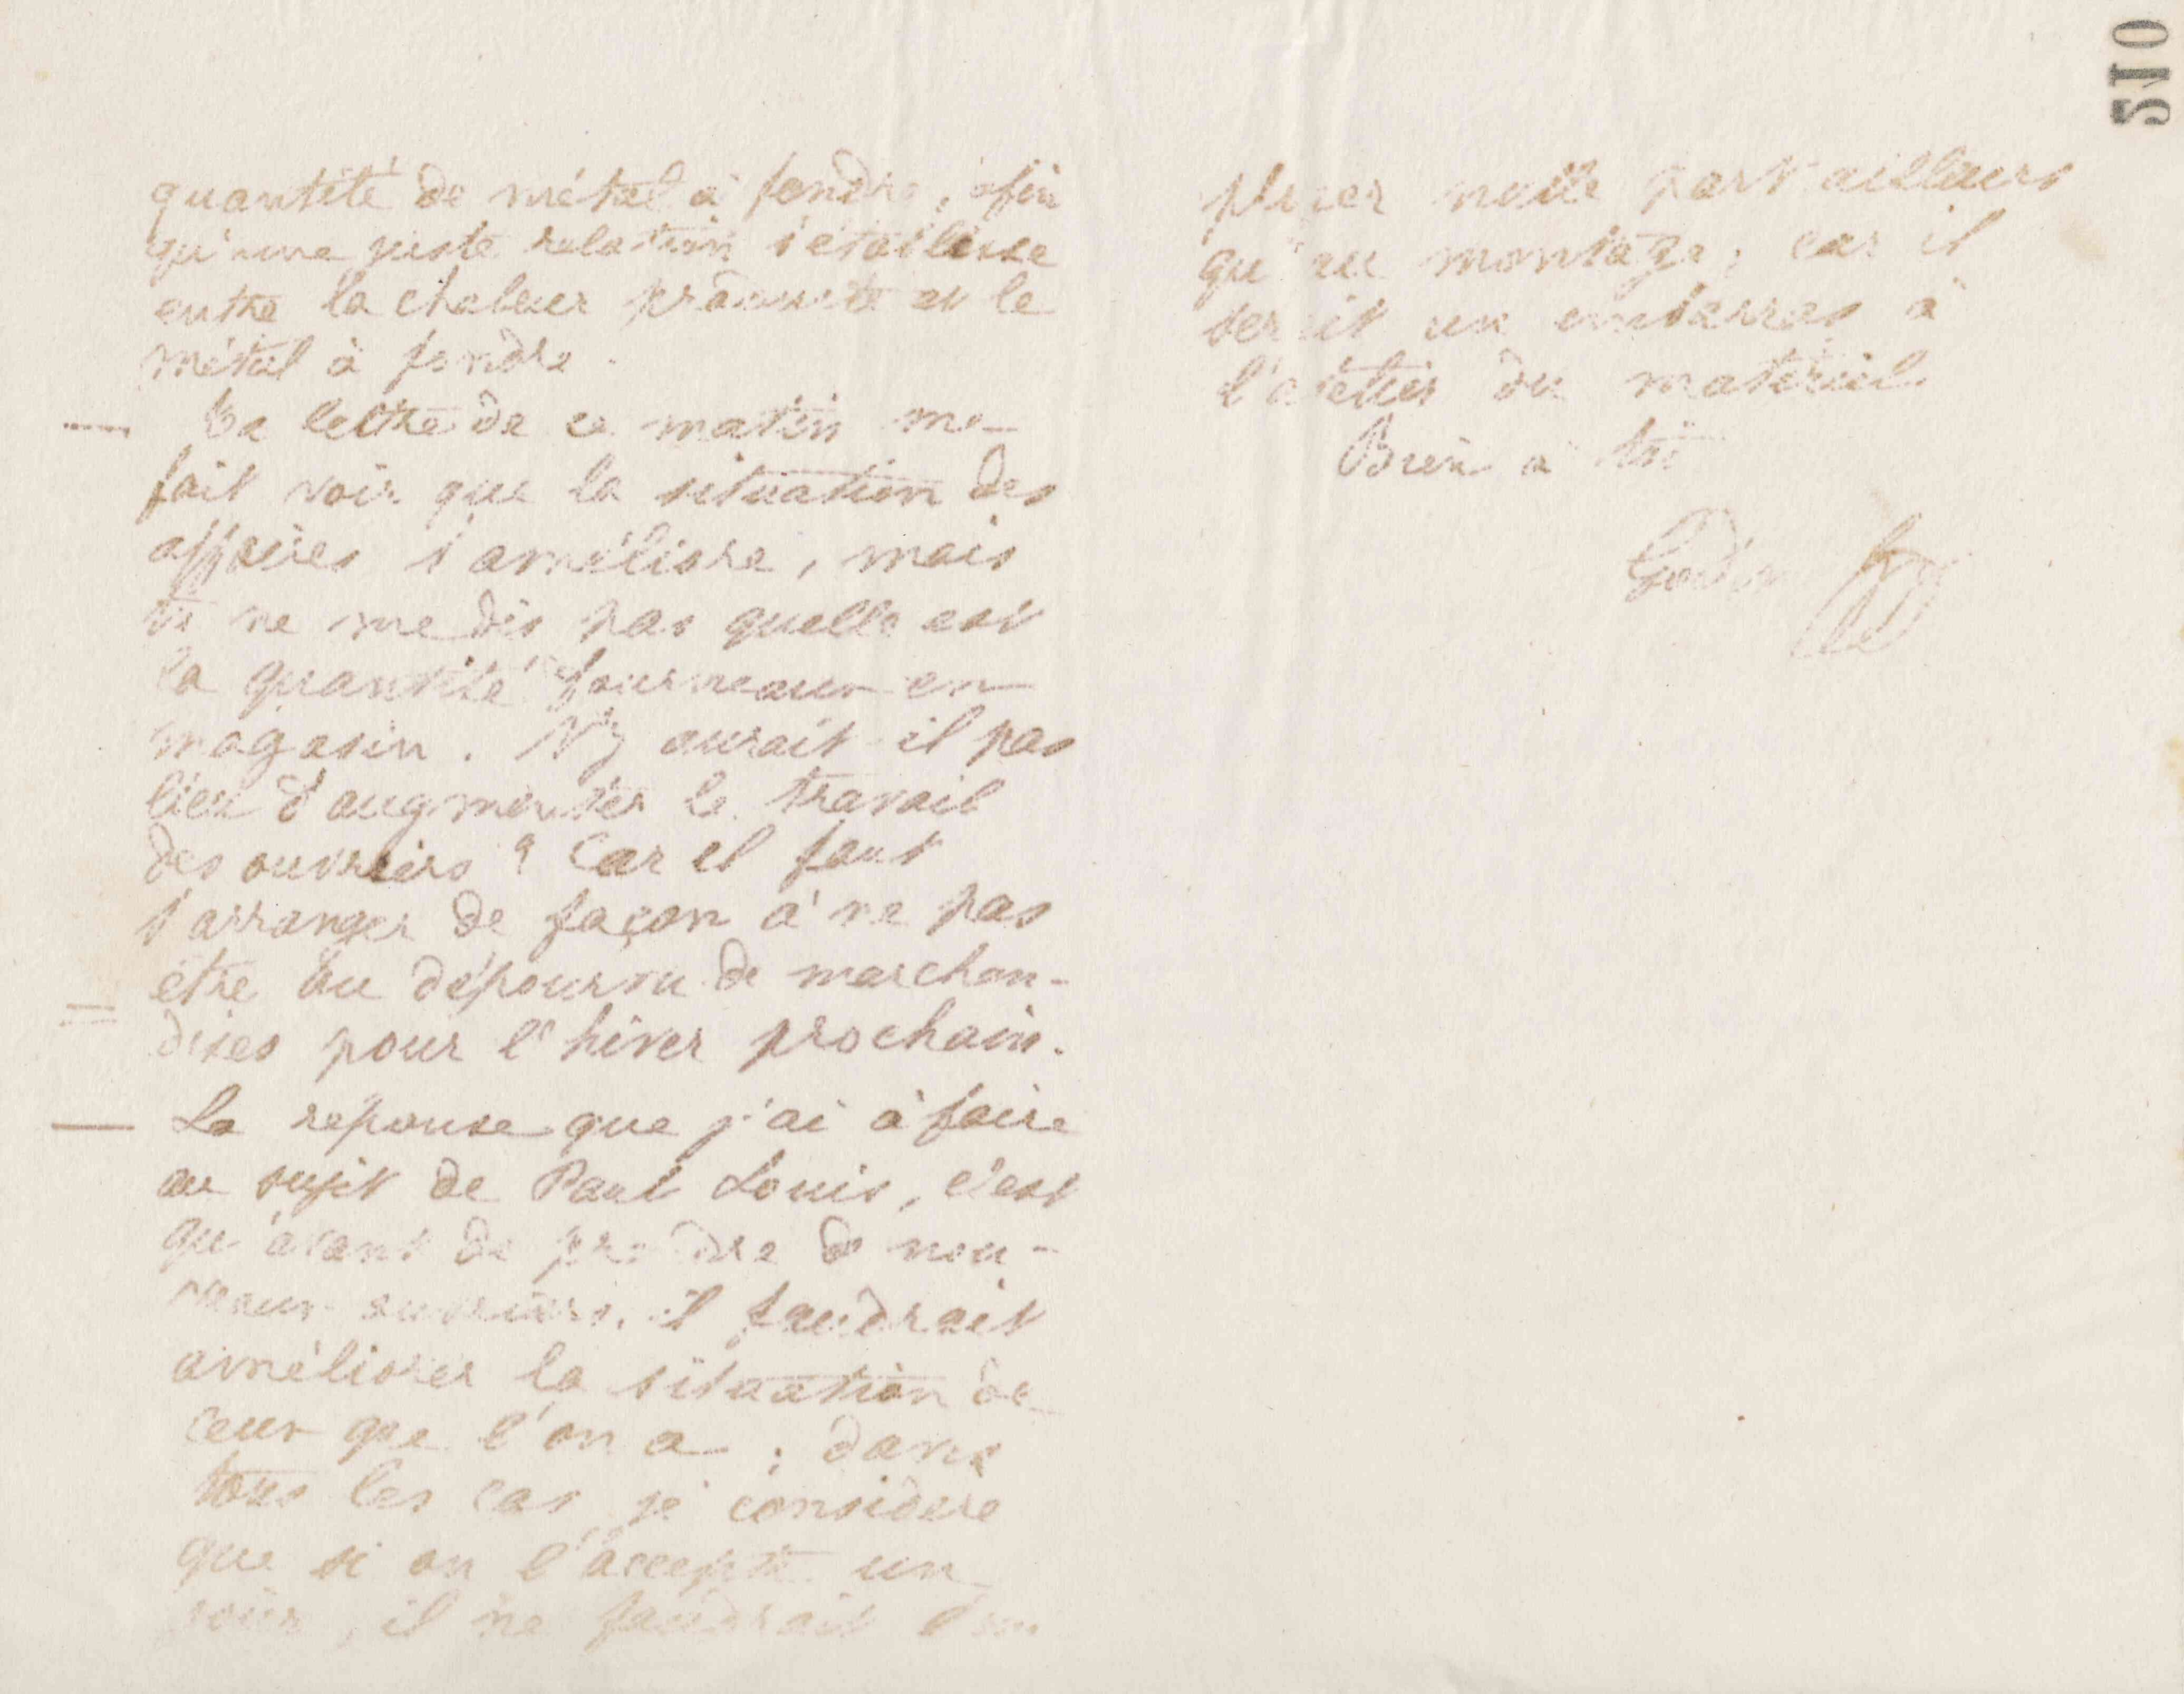 510
quantité de métal à fondre, afin
qu'une juste relation s'établisse
entre la chaleur produite et le
métal à fondre.
Ta lettre de ce matin me
fait voir que la situation des
affaires s'améliore, mais
tu ne me dis pas quelle est
la quantité fourneaux en
magasin. N'y aurait-il pas
lieu d'augmenter le travail
des ouvriers ? Car il faut
s'arranger de façon à ne pas
être au dépourvu de marchan-
dises pour l'hiver prochain.
La réponse que j'ai à faire
au sujet de Paul Louis, c'est
qu'avant de prendre de nou-
veaux ouvriers, il faudrait
améliorer la situation de
ceux que l'on a ; dans
tous les cas je considère
que si on l'accepte un
jour, il ne faudrait
placer nulle part ailleurs
qu'au montage, car il
serait un embarras à
l'atelier du matériel.
Bien à toi
Godin